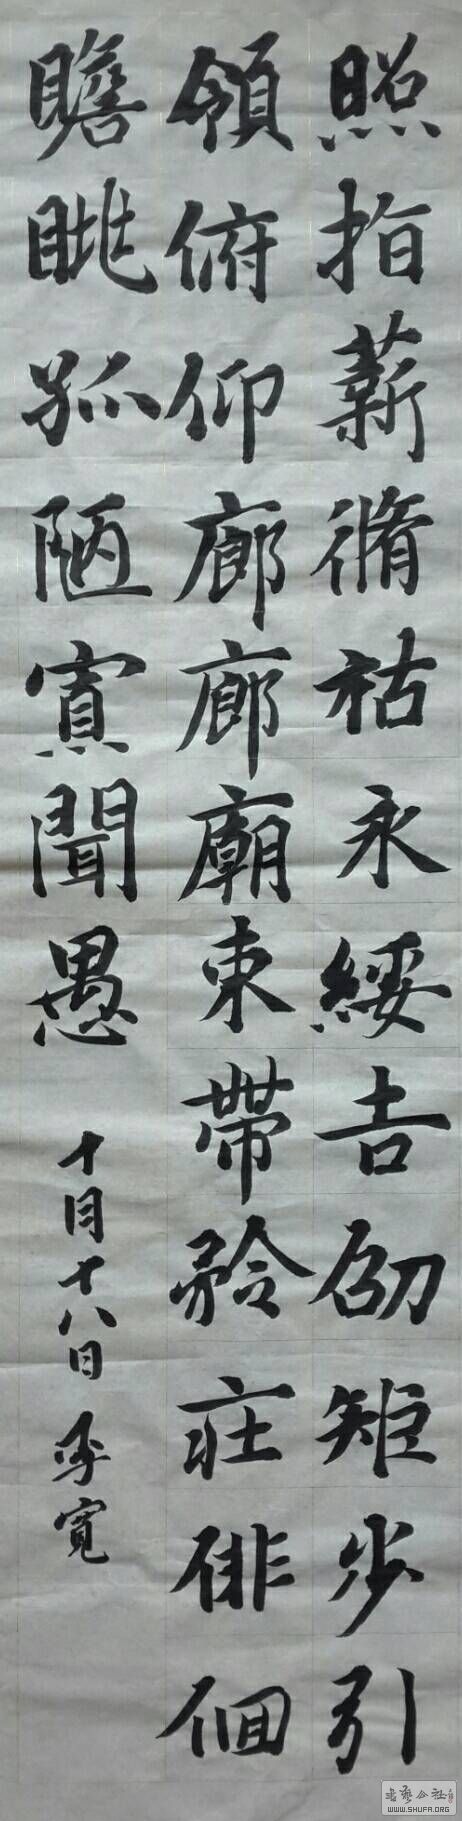 照指薪脩祜永綏吉劭矩步引
領俯仰廊廊廟束帶矜莊徘徊
瞻眺孤陋寡聞愚
十月十八日 寬
書藝公社
WWW.SHUFA.ORG